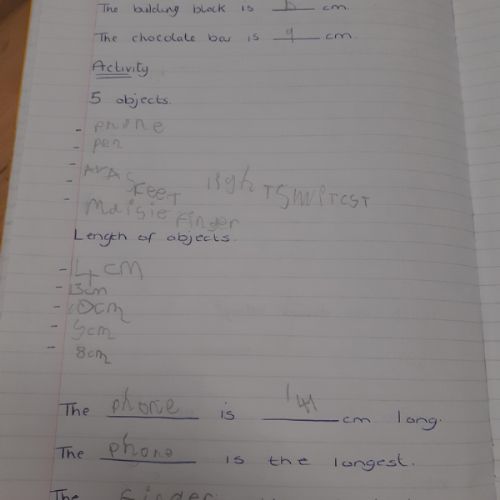 The building block is b cm.
The chocolate bar is 9 cm.
Activity
5 objects.
- phone
- pen
- AVAS FEET
- light SWITCST
- Maisie Finger
Length of objects.
- 14 cm
- 13cm
- 10cm
- 9cm
- 8cm
The phone is 14 cm long.
The phone is the longest.
The finger